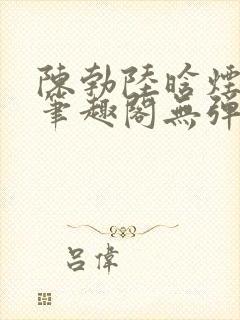 陳勃陸晗煙
筆趣閣無彈
呂偉